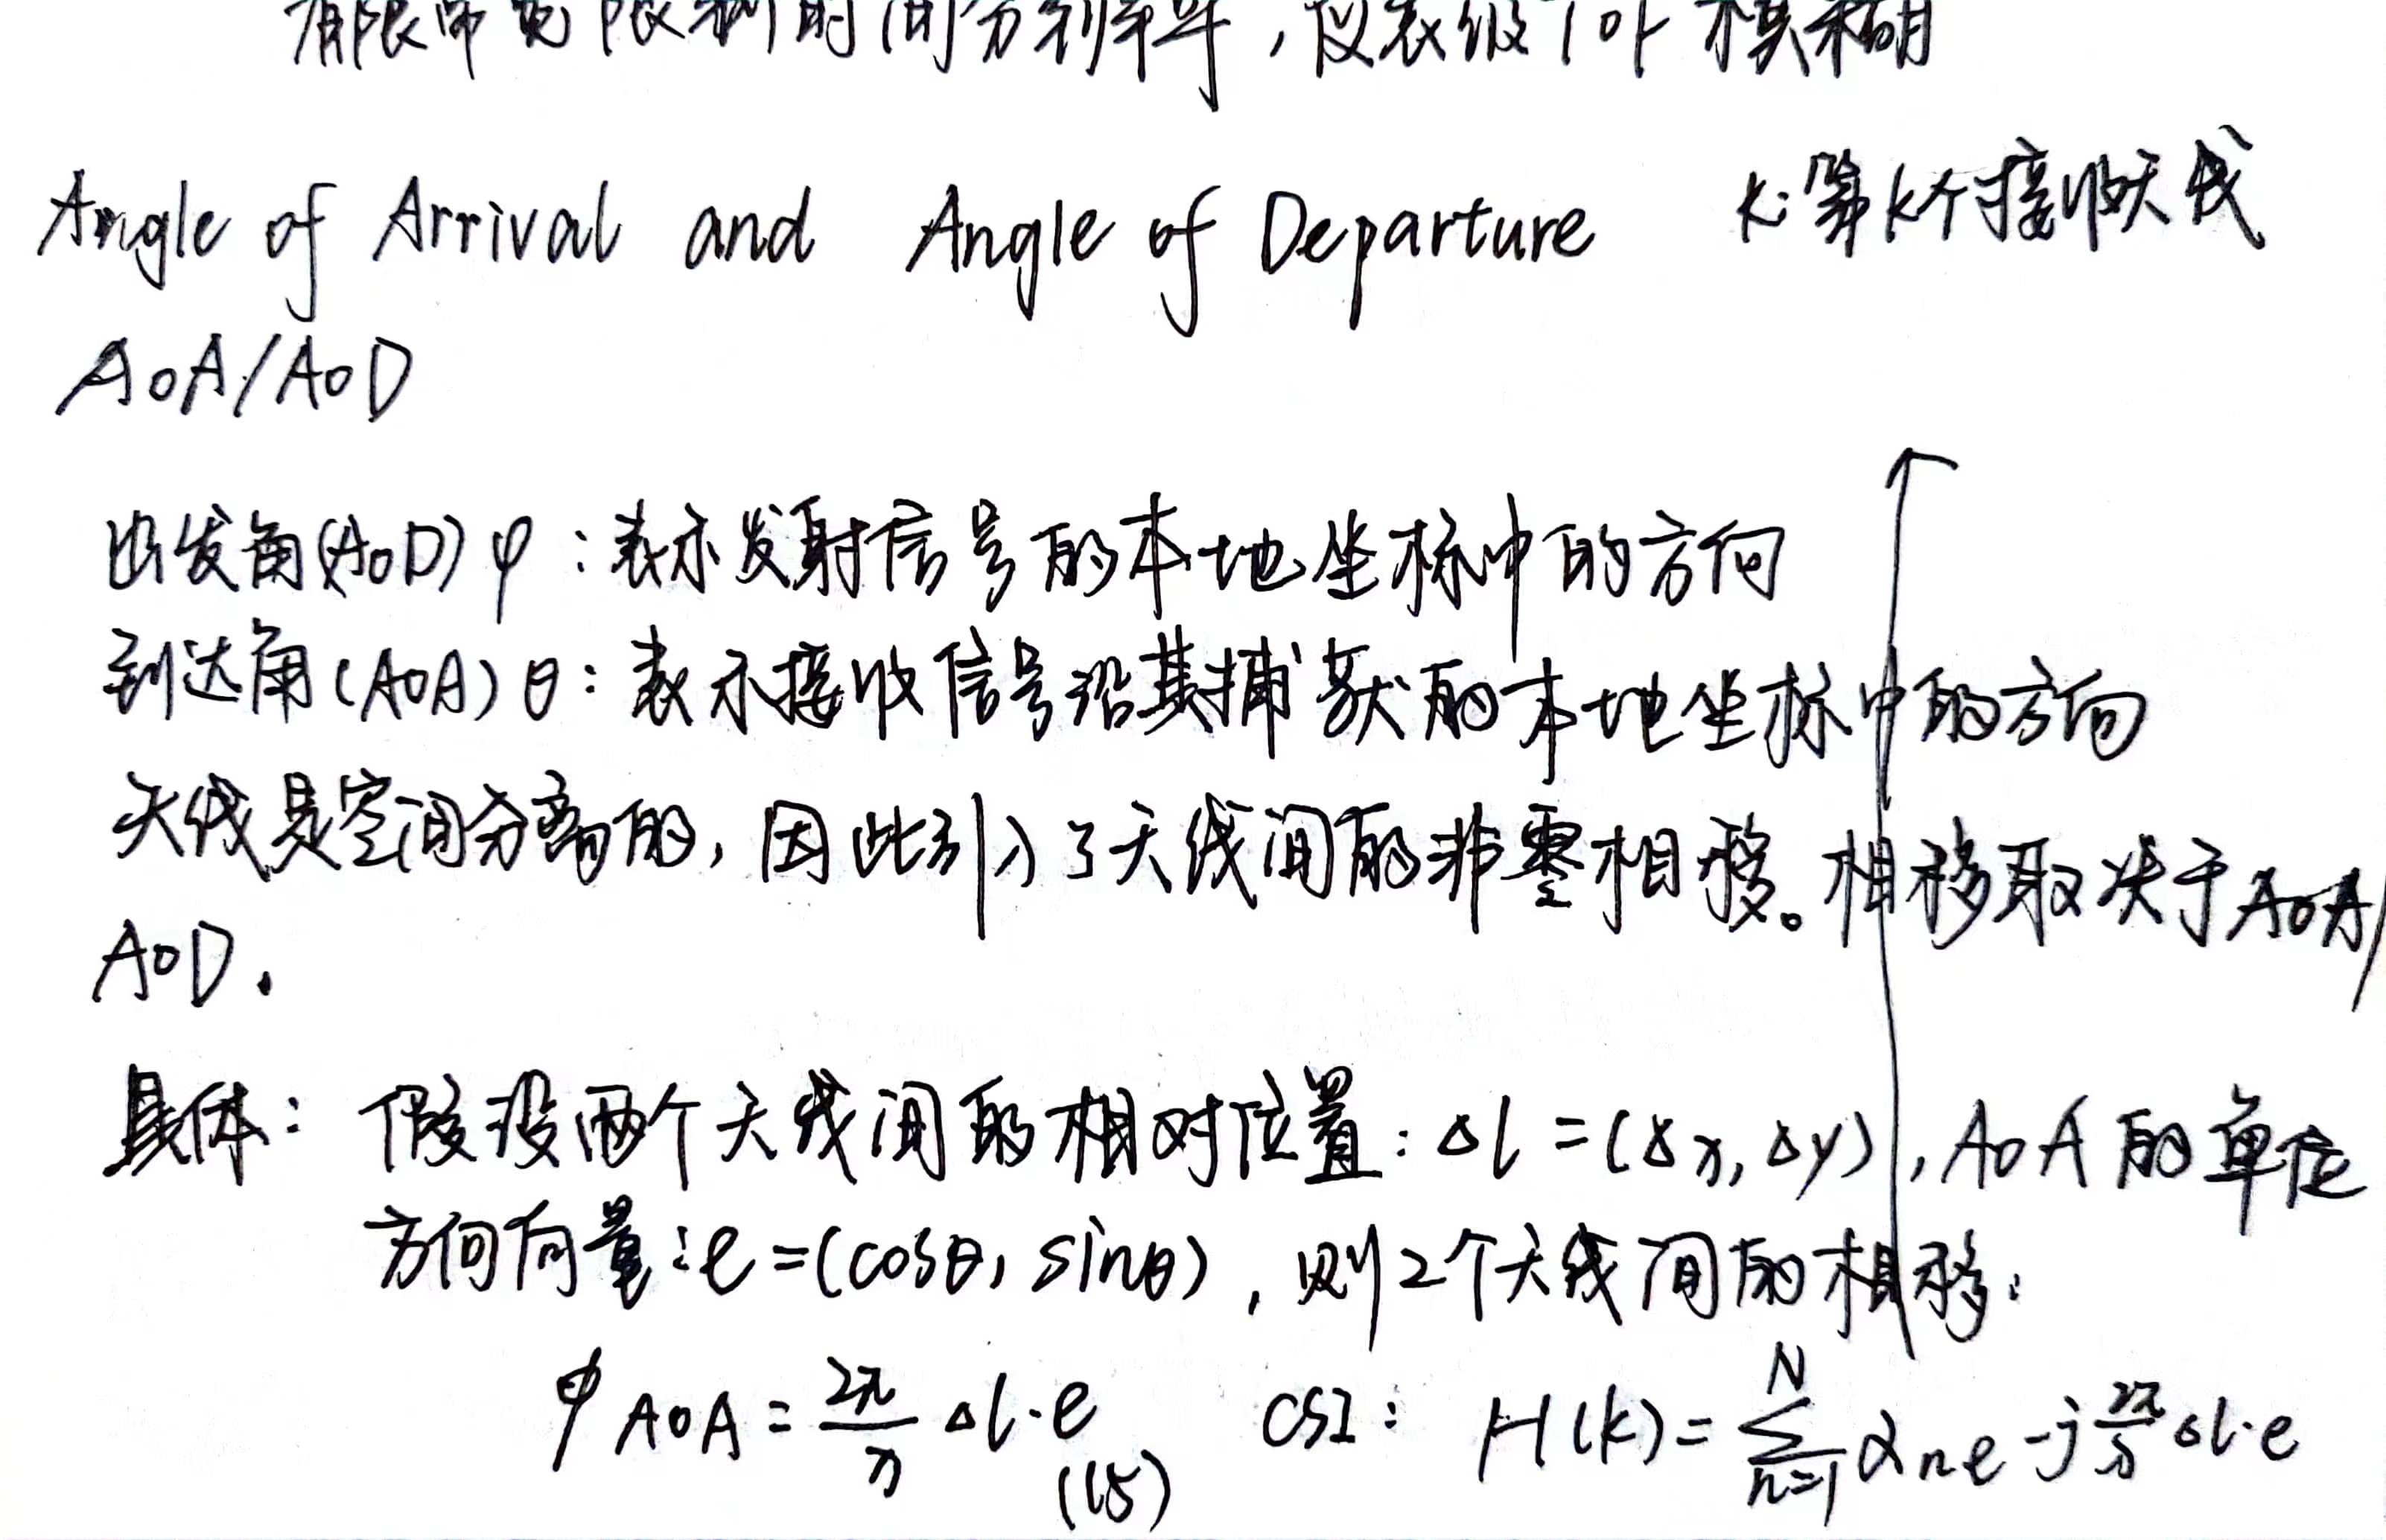 有限带宽限制时间分辨率，仅表级ToF模糊
Angle of Arrival and Angle of Departure k:第k个接收天线
AoA/AoD
出发角(AoD)φ：表示发射信号的本地坐标中的方向
到达角(AoA)θ：表示接收信号沿其捕获的本地坐标中的方向
天线是空间分离的，因此引入了天线间的非零相移。相移取决于AoA/
AoD.
具体：假设两个天线间的相对位置：Δl=(Δx,Δy),AoA的单位
方向向量：e=(cosθ, sinθ)，则2个天线间的相移：
φ AoA = 2π/λ Δl·e CSI: H(k)= N∑n=1 αn e -j 2π/λ Δl·e
(15)